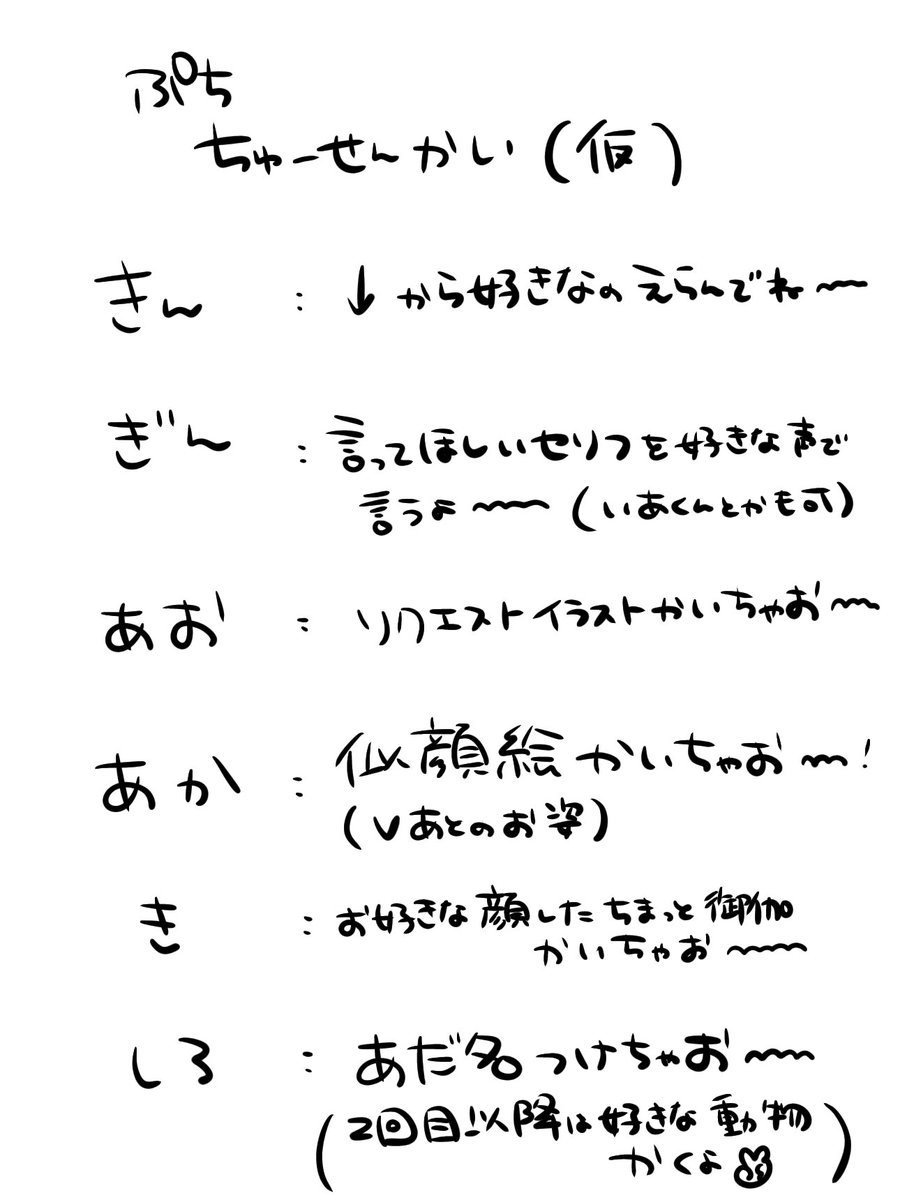 ぷち
ちゅーせんかい(仮)
きん : ↓から好きなのえらんでね〜
ぎん : 言ってほしいセリフを好きな声で
言うよ〜〜(いあくんとかも可)
あお : リクエストイラストかいちゃお〜
あか : 似顔絵かいちゃお〜!
(Vあとのお姿)
き : お好きな顔したちまっと御伽
かいちゃお〜〜
しろ : あだ名つけちゃお〜〜
(2回目以降は好きな動物
かくよ)